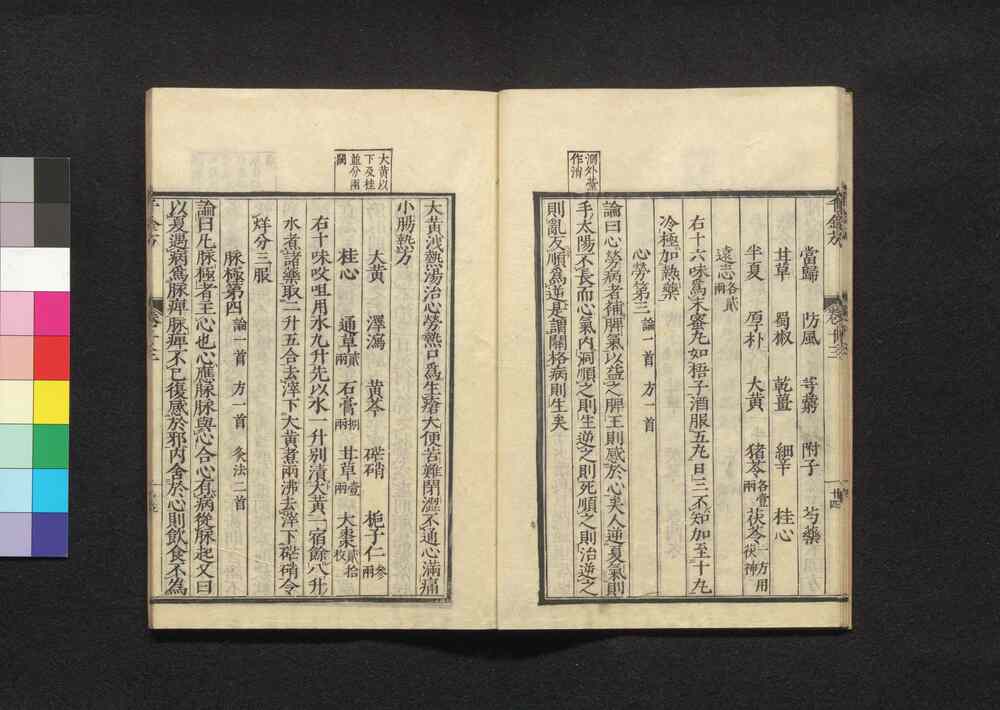 當歸 防風 芎藭 附子 芍藥
甘草 蜀椒 乾薑 細辛 桂心
半夏 厚朴 大黃 猪苓各壹兩 茯苓一方用茯神
遠志各貳兩
右十六味爲末蜜丸如梧子酒服五丸日三不知加至十丸
冷極加熱藥
心勞第三 論一首 方一首
論曰心勞病者補脾氣以益之脾王則感於心矣人逆夏氣則
手太陽不長而心氣內洞順之則生逆之則死順之則治逆之
則亂反順爲逆是謂關格病則生矣
大黃泄熱湯治心勞熱口爲生瘡大便苦難閉澀不通心滿痛
小腸熱方
大黃 澤瀉 黃芩 硭硝 梔子仁參兩
桂心 通草貳兩 石膏捌兩 甘草壹兩 大棗貳拾枚
右十味㕮咀用水九升先以水一升别漬大黃一宿餘八升
水煮諸藥取二升五合去滓下大黃煮兩沸去滓下硭硝令
烊分三服
脉極第四 論一首 方一首 灸法二首
論曰凡脉極者主心也心應脉脉與心合心有病從脉起又曰
以夏遇病爲脉痺脉痺不已復感於邪內舍於心則飲食不爲
大黃以
下及桂
並分兩
闕
千金方